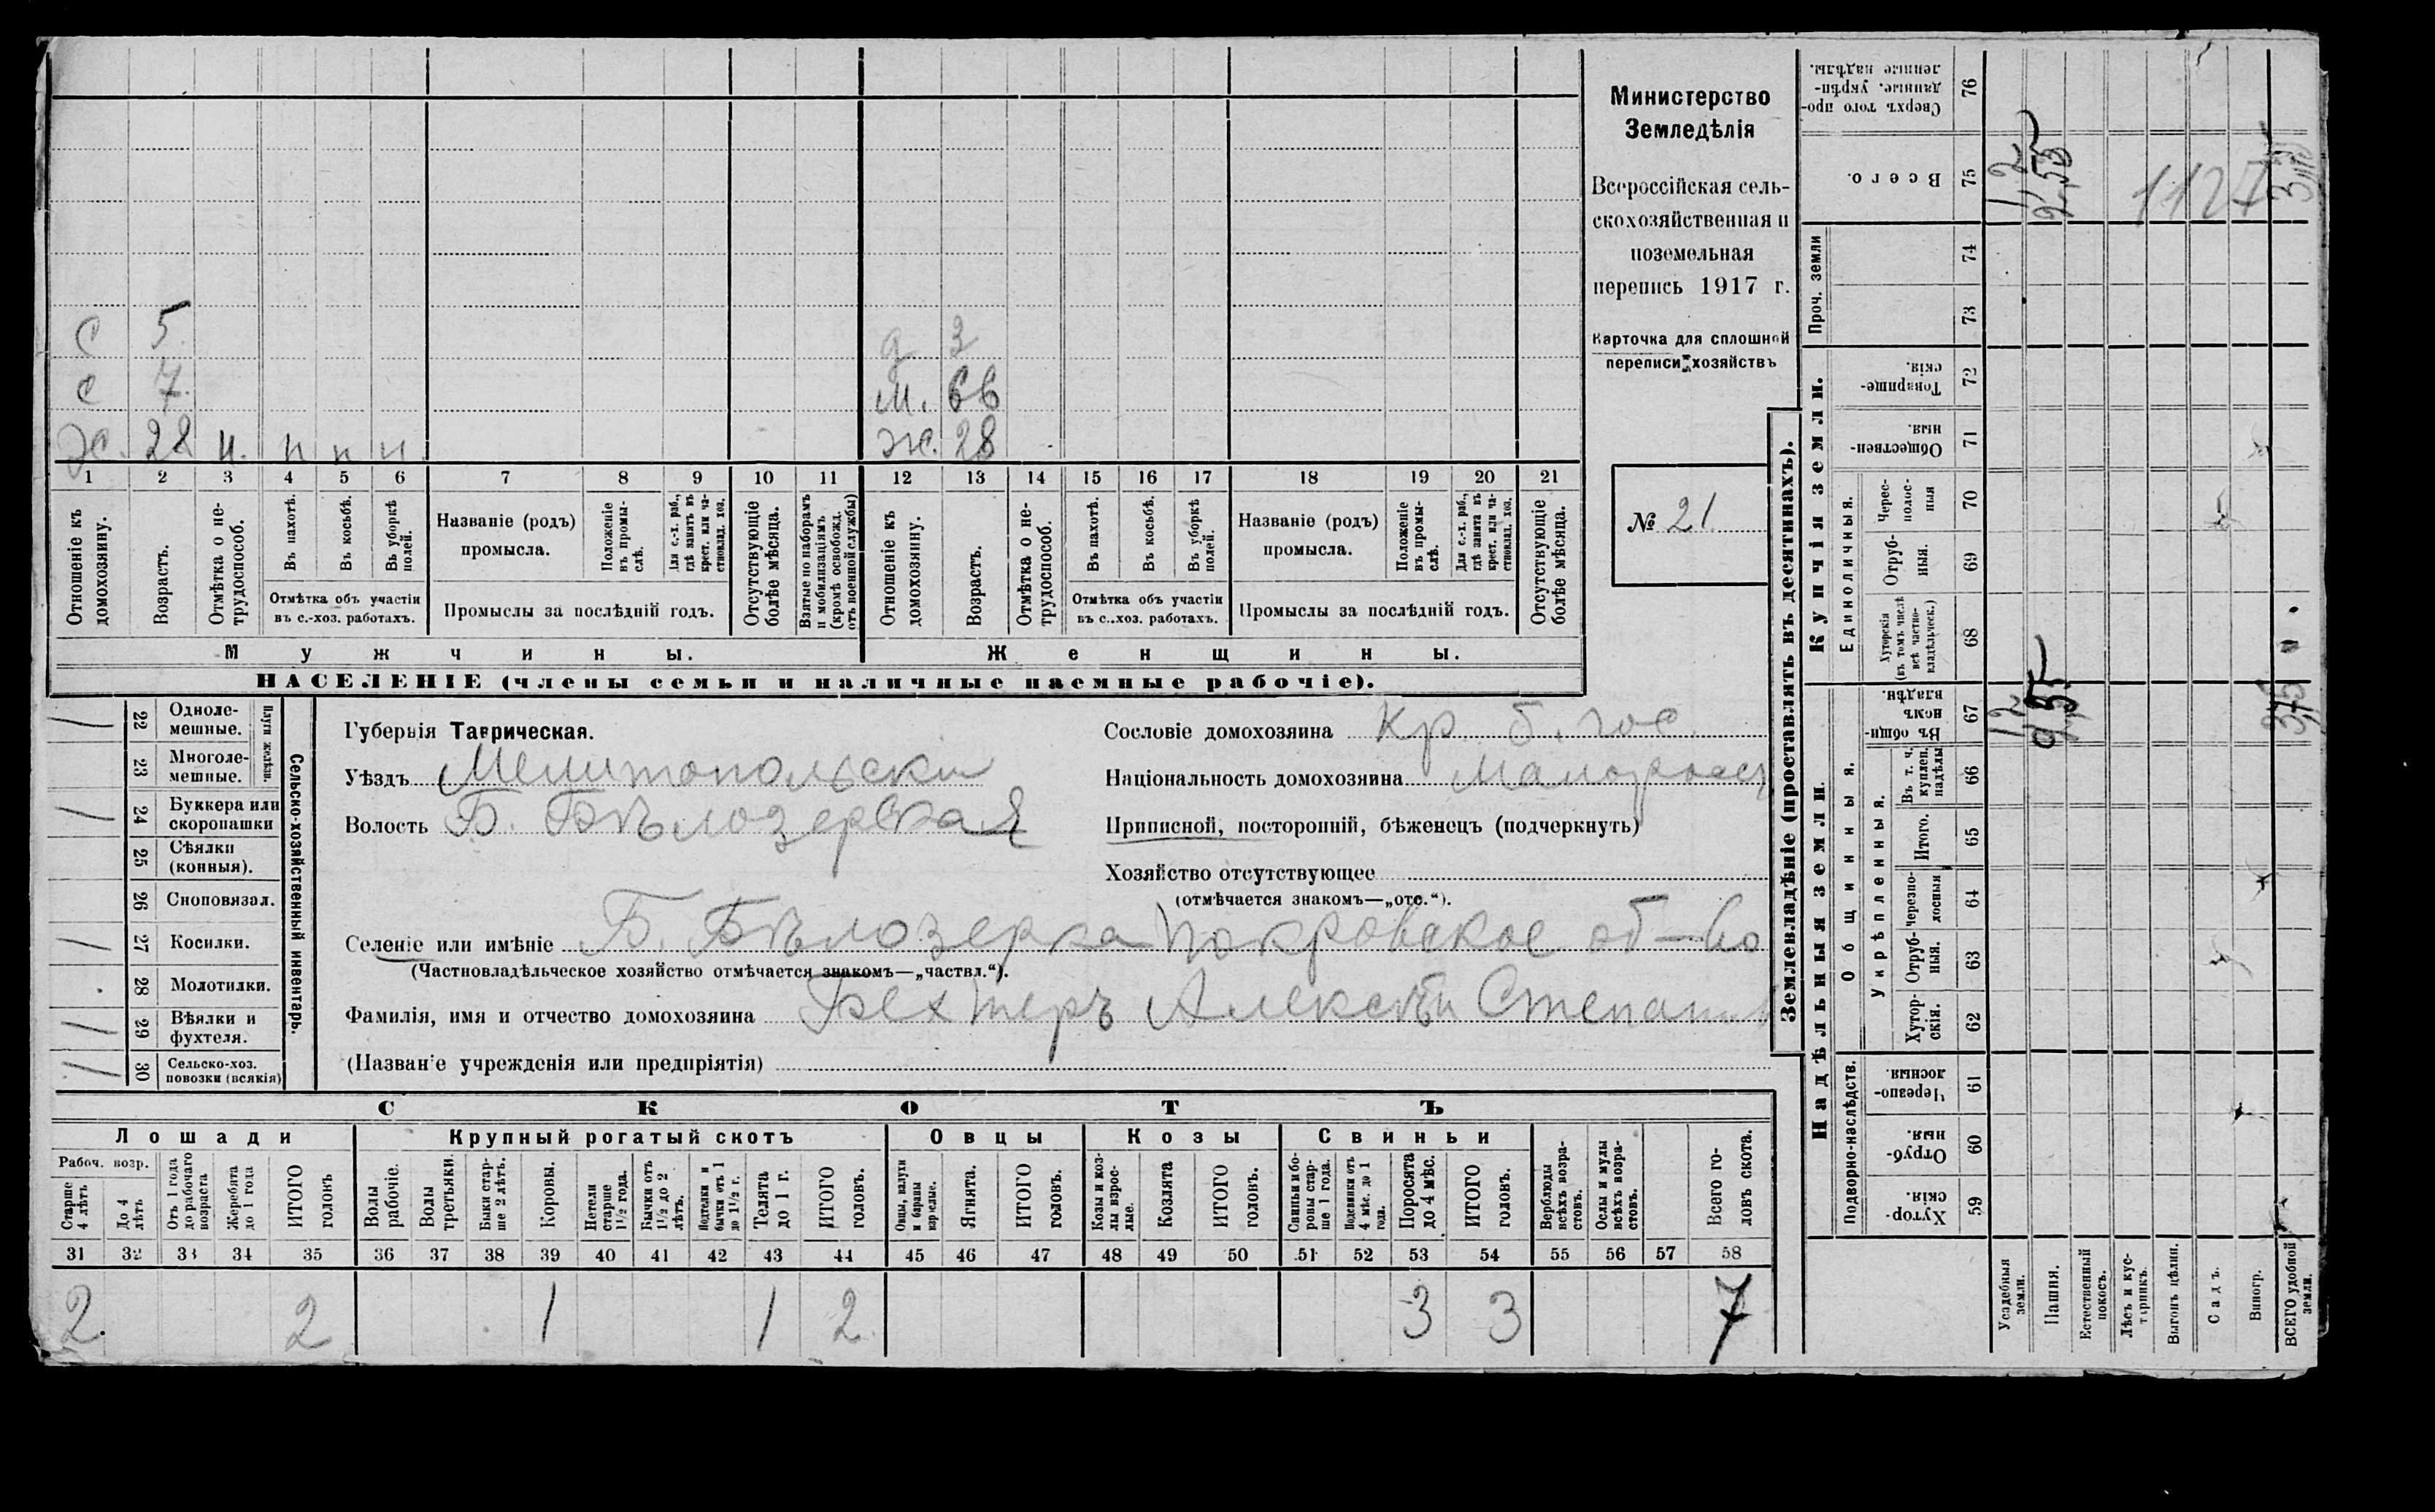 С 5 д 3
С 7 м. 66
Х. 28 н. п п п ж. 28
1 2 3 4 5 6 7 8 9 10 11 12 13 14 15 16 17 18 19 20 21
Отношеніе къ домохозяину.
Возрастъ.
Отмѣтка о не-трудоспособ.
Въ пахотѣ.
Въ косьбѣ.
Въ уборкѣ полей.
Отмѣтка объ участіи
въ с.-хоз. работахъ.
Названіе (родъ)
промысла.
Положеніе въ промы-слѣ.
Для с.-х. раб., гдѣ занятъ въ крест. или ча-стновлад. хоз.
Промыслы за послѣдній годъ.
Отсутствующіе болѣе мѣсяца.
Взятые по наборамъ и мобилизаціямъ (кромѣ освобожд. отъ военной службы)
Отношеніе къ домохозяину.
Возрастъ.
Отмѣтка о не-трудоспособ.
Въ пахотѣ.
Въ косьбѣ.
Въ уборкѣ полей.
Отмѣтка объ участіи
въ с..хоз. работахъ.
Названіе (родъ)
промысла.
Положеніе въ промы-слѣ.
Для с.-х. раб., гдѣ занята въ крест. или ча-стновлад. хоз.
Промыслы за послѣдній годъ.
Отсутствующіе болѣе мѣсяца.
Мужчины.
Женщины.
НАСЕЛЕНІЕ (члены семьи и наличные наемные рабочіе).
Министерство
Земледѣлія
Всероссійская сель-
скохозяйственная и
поземельная
перепись 1917 г.
Карточка для сплошной
переписи хозяйствъ
№ 21
Сельско-хозяйственный инвентарь.
Плуги желѣзн.
/ 22 Одноле-мешные.
23 Многоле-мешные.
/ 24 Буккера или скоропашки
25 Сѣялки (конныя).
26 Сноповязал.
/ 27 Косилки.
28 Молотилки.
/ 29 Вѣялки и фухтеля.
/ 30 Сельско-хоз. повозки (всякія)
Губернія Таврическая.
Уѣздъ Мелитопольски
Волость Б. Бѣлозерская
Селеніе или имѣніе Б. Бѣлозерка Покровское об-во
(Частновладѣльческое хозяйство отмѣчается знакомъ—„частвл.“).
Фамилія, имя и отчество домохозяина Рехтеръ Алексѣй
(Названіе учрежденія или предпріятія)
Сословіе домохозяина кр. б. гос.
Національность домохозяина Малоросс
Приписной, посторонній, бѣженецъ (подчеркнуть)
Хозяйство отсутствующее
(отмѣчается знакомъ—„отс.“).
СКОТЪ
Лошади
Рабоч. возр.
Старше 4 лѣтъ
До 4 лѣтъ
Отъ 1 года до рабочаго возраста
Жеребята до 1 года
ИТОГО головъ
Крупный рогатый скотъ
Волы рабочіе.
Волы третьяки.
Быки стар-ше 2 лѣтъ.
Коровы.
Нетели старше 1 1/2 года.
Бычки отъ 1 1/2 до 2 лѣтъ.
Подтелки и бычки отъ 1 до 1 1/2 г.
Телята до 1 г.
ИТОГО головъ.
Овцы
Овцы, валухи и бараны взрослые.
Ягнята.
ИТОГО головъ.
Козы
Козы и коз-лы взрос-лые.
Козлята
ИТОГО головъ.
Свиньи
Свиньи и бо-ровы стар-ше 1 года.
Подсвинки отъ 4 мѣс. до 1 года.
Поросята до 4 мѣс.
ИТОГО головъ.
Верблюды всѣхъ возра-стовъ.
Ослы и мулы всѣхъ возра-стовъ.
Всего го-ловъ скота.
31 32 33 34 35 36 37 38 39 40 41 42 43 44 45 46 47 48 49 50 51 52 53 54 55 56 57 58
2. 2 1 1 2 3 3 7
Землевладѣніе (проставлять въ десятинахъ).
Надѣльныя земли.
Подворно-наслѣдств.
Хутор-скія. 59
Отруб-ныя. 60
Черезпо-лосныя. 61
Общинныя.
Укрѣпленныя.
Хутор-скія. 62
Отруб-ныя. 63
Черезпо-лосныя 64
Итого. 65
Въ т. ч. куплен. надѣлы 66
Въ общи-номъ владѣн. 67
Купчія земли.
Единоличныя.
Хуторскія (въ томъ числѣ всѣ частно-владѣльческ.) 68
Отруб-ныя. 69
Черес-полос-ныя 70
Обществен-ныя. 71
Товарище-скія. 72
Проч. земли
73
74
Всего. 75
Сверхъ того про-данные, укрѣп-ленные надѣлы. 76
Усадебныя земли.
Пашня.
Естественный покосъ.
Лѣсъ и кус-тарникъ.
Выгонъ цѣлин.
Садъ.
Виногр.
ВСЕГО удобной земли.
1127